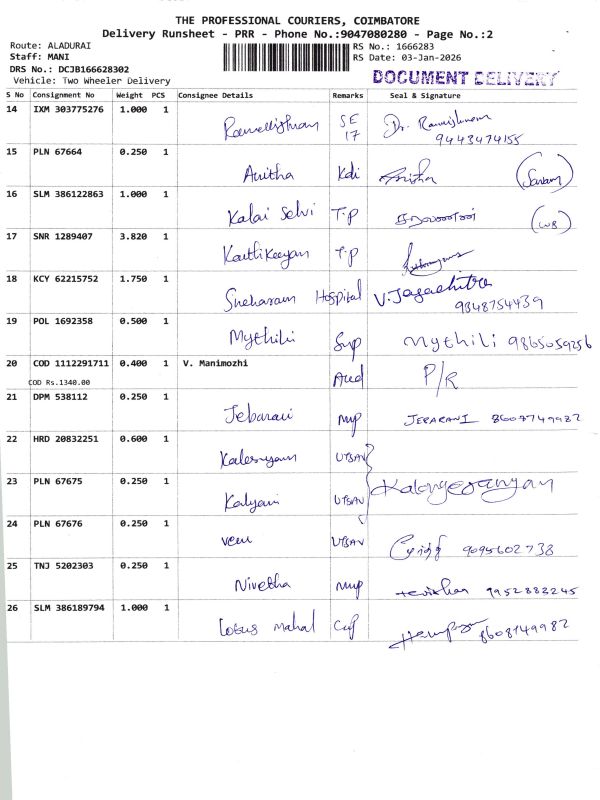 THE PROFESSIONAL COURIERS, COIMBATORE
Delivery Runsheet - PRR - Phone No.:9047080280 - Page No.:2
Route: ALADURAI
Staff: MANI
DRS No.: DCJB166628302
Vehicle: Two Wheeler Delivery
RS No.: 1666283
RS Date: 03-Jan-2026
DOCUMENT DELIVERY
S No Consignment No Weight PCS Consignee Details Remarks Seal & Signature
14 IXM 303775276 1.000 1 SE 17 Dr.
9443474155
15 PLN 67664 0.250 1 Anitha Kdi Anitha
16 SLM 386122863 1.000 1 Kalai Selvi T.P
17 SNR 1289407 3.820 1 Karthikeyan T.P
18 KCY 62215752 1.750 1 Sneharam Hospital V. Jayachitra
9348754439
19 POL 1692358 0.500 1 Mythili Sup Mythili 9865059256
20 COD 1112291711 0.400 1 V. Manimozhi P/R
COD Rs.1340.00
21 DPM 538112 0.250 1 Jebarani JEPARANI 8607749987
22 HRD 20832251 0.600 1 UTBAV
23 PLN 67675 0.250 1 Kalyani UTBAV
24 PLN 67676 0.250 1 UTBAV 9095602738
25 TNJ 5202303 0.250 1 Nivetha 9952883245
26 SLM 386189794 1.000 1 Lotus Mahal Cup 8608149982